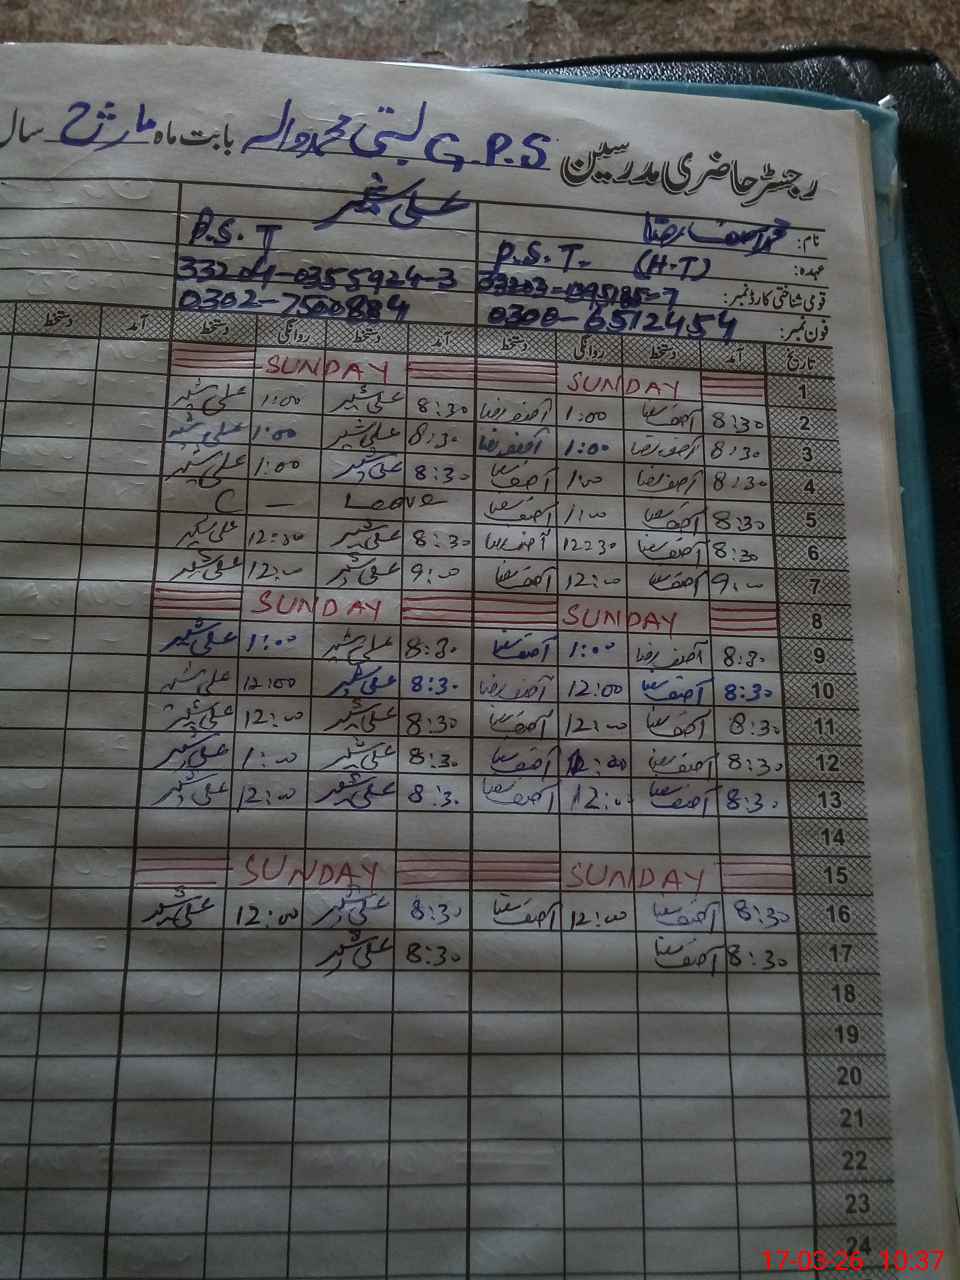 رجسٹر حاضری مدرسین G.P.S بستی محمد والہ بابت ماہ مارچ سال
نام: محمد آصف رضا علی شیر
عہدہ: P.S.T. (H.T) P.S.T
قومی شناختی کارڈ نمبر: 33203- 33204-0355924-3
فون نمبر: 0300-6512454 0302-7500884
تاریخ آمد دستخط روانگی دستخط آمد دستخط روانگی دستخط آمد دستخط
1 SUNDAY SUNDAY
2 8:30 آصف رضا 1:00 آصف رضا 8:30 علی شیر 1:00 علی شیر
3 8:30 آصف رضا 1:00 آصف رضا 8:30 علی شیر 1:00 علی شیر
4 8:30 آصف رضا 1:00 آصف رضا 8:30 علی شیر 1:00 علی شیر
5 8:30 آصف رضا 1:00 آصف رضا C — Leave
6 8:30 آصف رضا 12:30 آصف رضا 8:30 علی شیر 12:30 علی شیر
7 9:00 آصف رضا 12:00 آصف رضا 9:00 علی شیر 12:00 علی شیر
8 SUNDAY SUNDAY
9 8:30 آصف رضا 1:00 آصف رضا 8:30 علی شیر 1:00 علی شیر
10 8:30 آصف رضا 12:00 آصف رضا 8:30 علی شیر 12:00 علی شیر
11 8:30 آصف رضا 12:00 آصف رضا 8:30 علی شیر 12:00 علی شیر
12 8:30 آصف رضا 12:00 آصف رضا 8:30 علی شیر 1:00 علی شیر
13 8:30 آصف رضا 12:00 آصف رضا 8:30 علی شیر 12:00 علی شیر
14
15 SUNDAY SUNDAY
16 8:30 آصف رضا 12:00 آصف رضا 8:30 علی شیر 12:00 علی شیر
17 8:30 آصف رضا 8:30 علی شیر
18
19
20
21
22
23
24
17-03-26 10:37